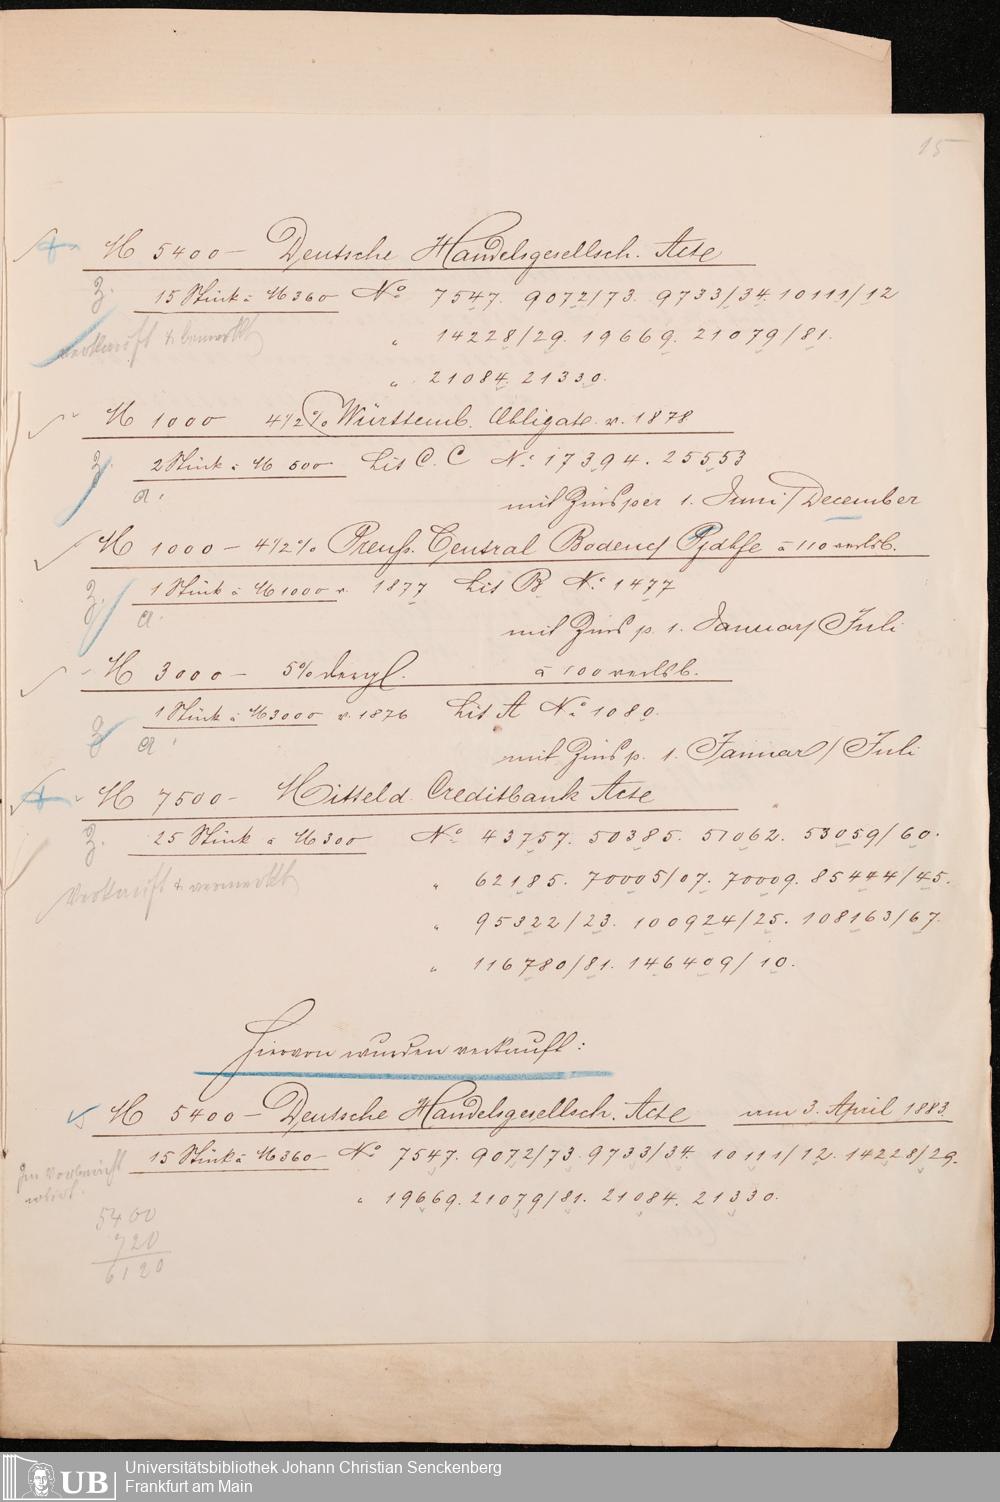 15
M 5400 – Deutsche Handelsgesellsch. Acte
15 Stück à M 360 No 7547. 9072/73. 9733/34. 10111/12
" 14228/29. 19669. 21079/81.
verkauft & bemerkt
" 21084. 21330.
M 1000 4½% Württemb. Obligat. v. 1878
2 Stück à M 500 Lit C. C No 17394. 25553
a.
mit Zins per 1. Juni/December
M 1000 – 4½% Preuss. Central Bodencr Pfdbfe à 110 verlsb.
1 Stück à M 1000 v. 1877 Lit B No 1477
a.
mit Zins p. 1. Januar/Juli
M 3000 – 5% dergl. à 100 verlsb.
1 Stück à M 3000 v. 1876 Lit A No 1080.
a.
mit Zins p. 1. Januar/Juli
M 7500 – Mitteld. Creditbank Acte
25 Stück à M 300 No 43757. 50385. 51062. 53059/60.
" 62185. 70005/07. 70009. 85444/45.
Verkauft & vermerkt
" 95322/23. 100924/25. 108163/67.
" 116780/81. 146409/10.
Hiervon wurden verkauft:
M 5400 – Deutsche Handelsgesellsch. Acte am 3. April 1883.
15 Stück à M 360 – No 7547. 9072/73. 9733/34. 10111/12. 14228/29.
" 19669. 21079/81. 21084. 21330.
5400
720
6120
UB
Universitätsbibliothek Johann Christian Senckenberg
Frankfurt am Main